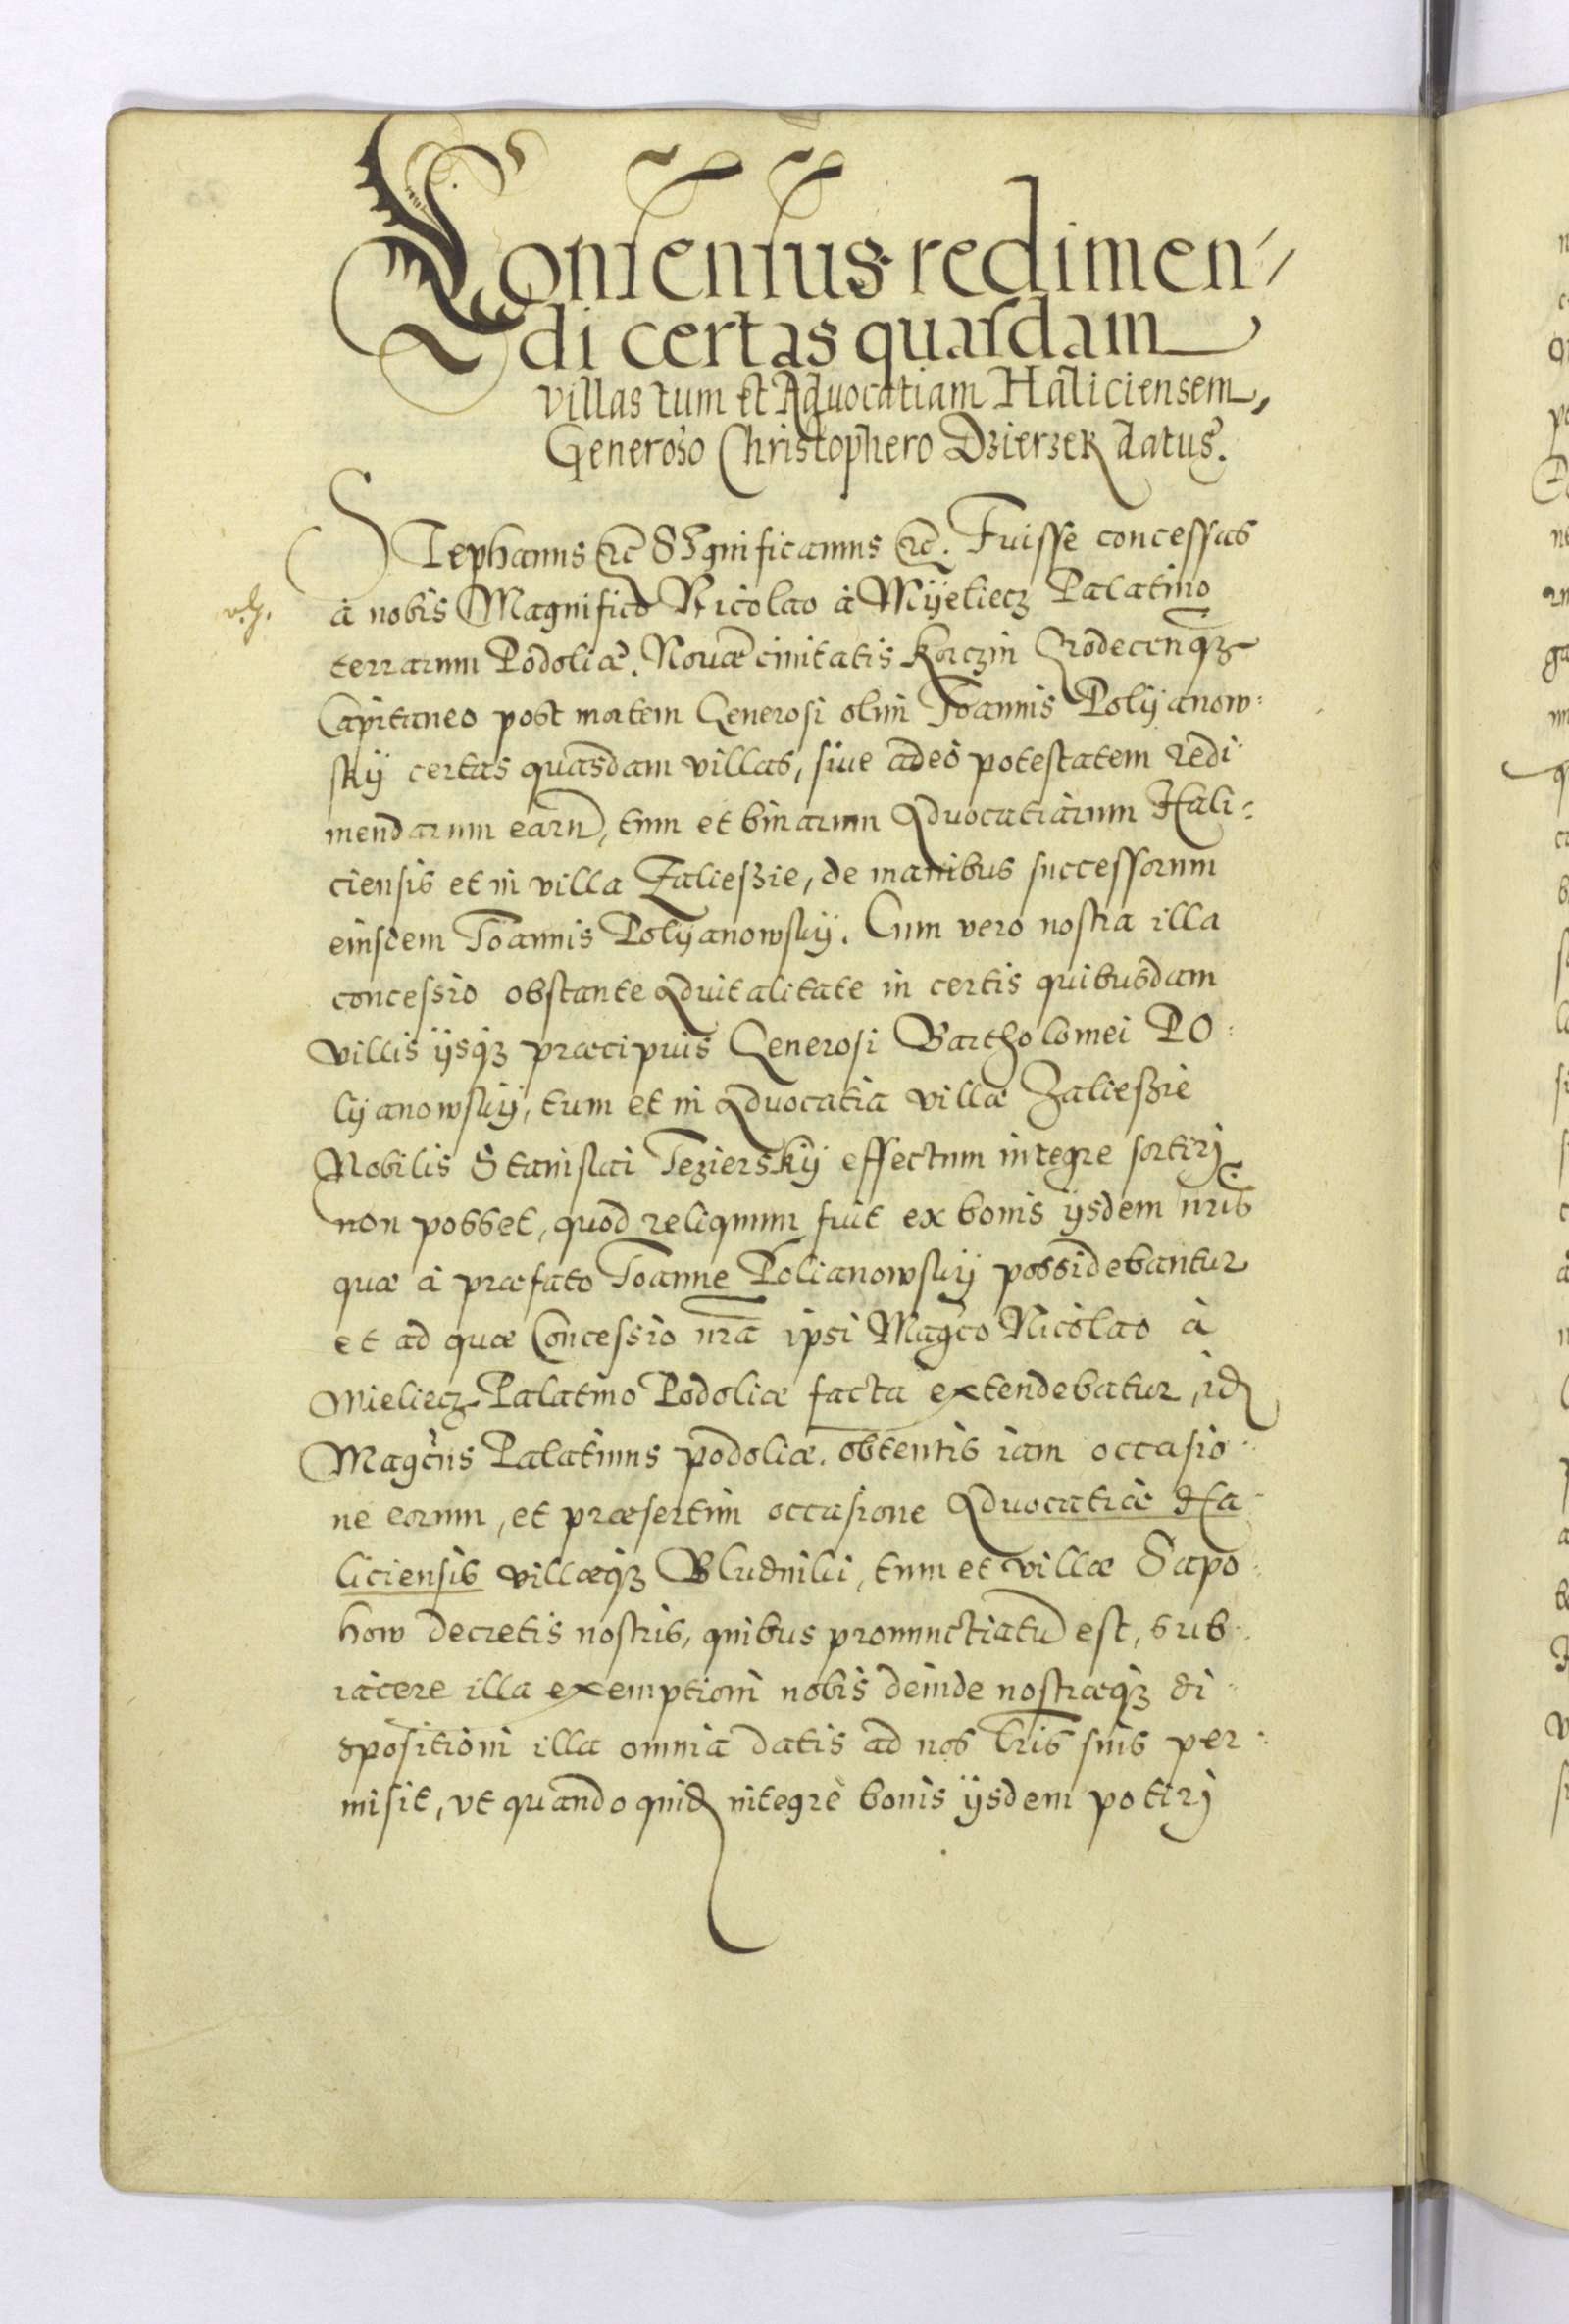 Consensus redimen/
di certas quasdam
villas tum et Advocatiam Haliciensem,
Generoso Christophero Dzierzek datus.
Stephanus etc Significamus etc. Fuisse concessas
à nobis Magnifico Nicolao à Myeliecz Palatino
terrarum Podoliæ. Novæ civitatis Korczin Grodecenqz
Capitaneo post mortem Generosi olim Joannis Polyanow:
sky certas quasdam villas, sive adeò potestatem redi
mendarum earu, tum et binarum Advocatiarum Hali:
ciensis et in villa Zalieszie, de manibus successorum
eiusdem Joannis Polyanowsky. Cum vero nostra illa
concessio obstante Advitalitate in certis quibusdam
villis ysqz præcipuis Generosi Bartholomei Po:
lyanowsky, tum et in Advocatia villæ Zalieszie
Nobilis Stanislai Jeziersky effectum integre sortirj
non posset, quod reliquum fuit ex bonis ysdem nris
quæ à præfato Joanne Polianowsky possidebantur
et ad quæ Concessio nra ipsi Magco Nicolao à
Mieliecz Palatino Podoliæ facta extendebatur, id
Magcus Palatinus podoliæ. obtentis iam occasio:
ne eorum, et præsertim occasione Advocatiæ Ha
liciensis villæqz Bludniki, tum et villæ Sapo:
how decretis nostris, quibus pronunctiatu est, sub:
iacere illa exemptioni nobis deinde nostræqz di
spositioni illa omnia datis ad nos lris suis per:
misit, ut quando quid integrè bonis ysdem potirj